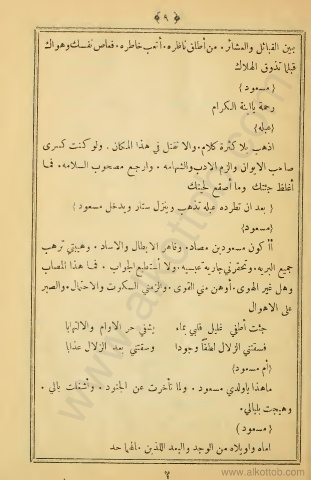 ﴿ ٩ ﴾
بين القبائل والعشائر . من أطلق ناظره . أتعب خاطره . فعاص نفسك وهواك
قبلما تذوق الهلاك
{ مسعود }
رحمة يا ابنة الكرام
{ عبله }
اذهب بلا كثرة كلام . والا تقتل في هذا المكان . ولو كنت كسرى
صاحب الايوان والزم الادب والشهامه . وارجع مصحوب السلامه . فما
أغلظ جثتك وما أصقع لحيتك
{ بعد ان تطرده عبله تذهب وينزل ستار ويدخل مسعود }
{ مسعود }
أأكون مسعود بن مصاد . وقاهر الابطال والاساد . وهيبتي ترهب
جميع البريه . وتحقرني جارية عبسيه . ولا أستطيع الجواب . فما هذا المصاب
وهل غير الهوى . أوهن مني القوى . والزمني السكوت والاحتمال . والصبر
على الاهوال
جئت أطفي غليل قلبي بماء يشفي حر الاوام والالتهابا
فسقتني الزلال لطفاً وجودا وسقتني بعد الزلال عذابا
{ أم مسعود }
ماهذا ياولدي مسعود . ولما تأخرت عن الجنود . وشغلت بالي .
وهيجت بلبالي .
{ مسعود }
اماه واويلاه من الوجد والبعد اللذين مالهما حد
www.alkottob.com